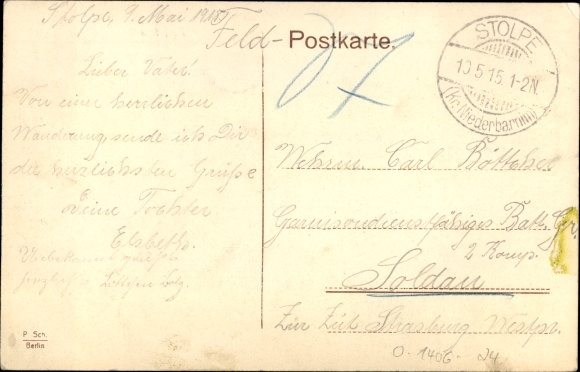 Stolpe, 9. Mai 1915
Feld-Postkarte.
STOLPE
10.5.15.1-2N.
(Kr. Niederbarnim)
Lieber Vater!
Von einer herrlichen
Wanderung, sende ich Dir
die herzlichsten Grüße
Deine Tochter
Elsbeth.
Unbekannt
Wehrm. Carl Böttcher
Garnisondienstfähiges Batt. Gr.
2 Komp.
Soldau
Zur Zeit Strasburg Westpr.
P. Sch.
Berlin
0-1406-24